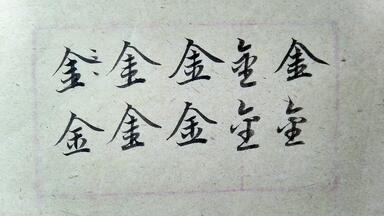 金金金金金
金金金金金